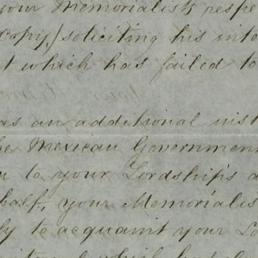 your Memorialists respe
copy) soliciting his inte
t which has failed to
as an additional inst
he Mexican Government
u to your Lordships a
half, your Memorialis
ly to acquaint your Lo